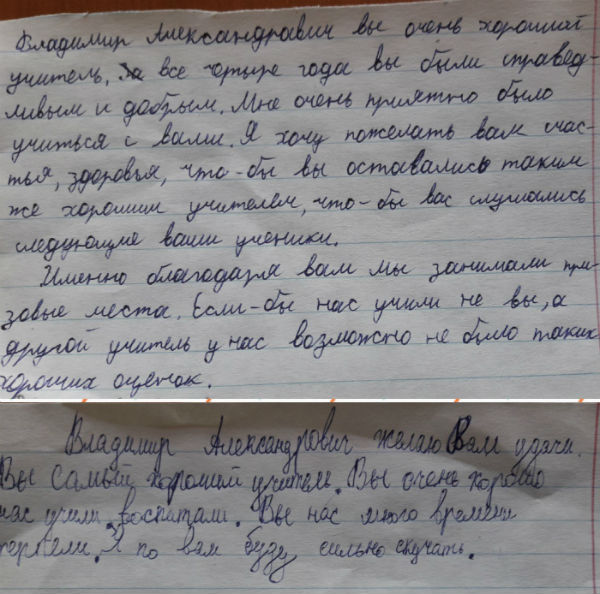 Владимир Александравич вы очень хороший
учитель. За все четыре года вы были справед-
ливым и добрым. Мне очень приятно было
учиться с вами. Я хочу пожелать вам счас-
тья, здоровья, что-бы вы оставались таким
же хорошим учителем, что-бы вас слушались
следующие ваши ученики.
Именно благодаря вам мы занимали при-
зовые места. Если-бы нас учили не вы, а
другой учитель у нас возможно не было таких
хороших оценок.
Владимир Александрович желаю Вам удачи.
Вы самый хороший учитель. Вы очень хорошо
нас учили, воспитали. Вы нас много времени
терпели. Я по вам буду сильно скучать.